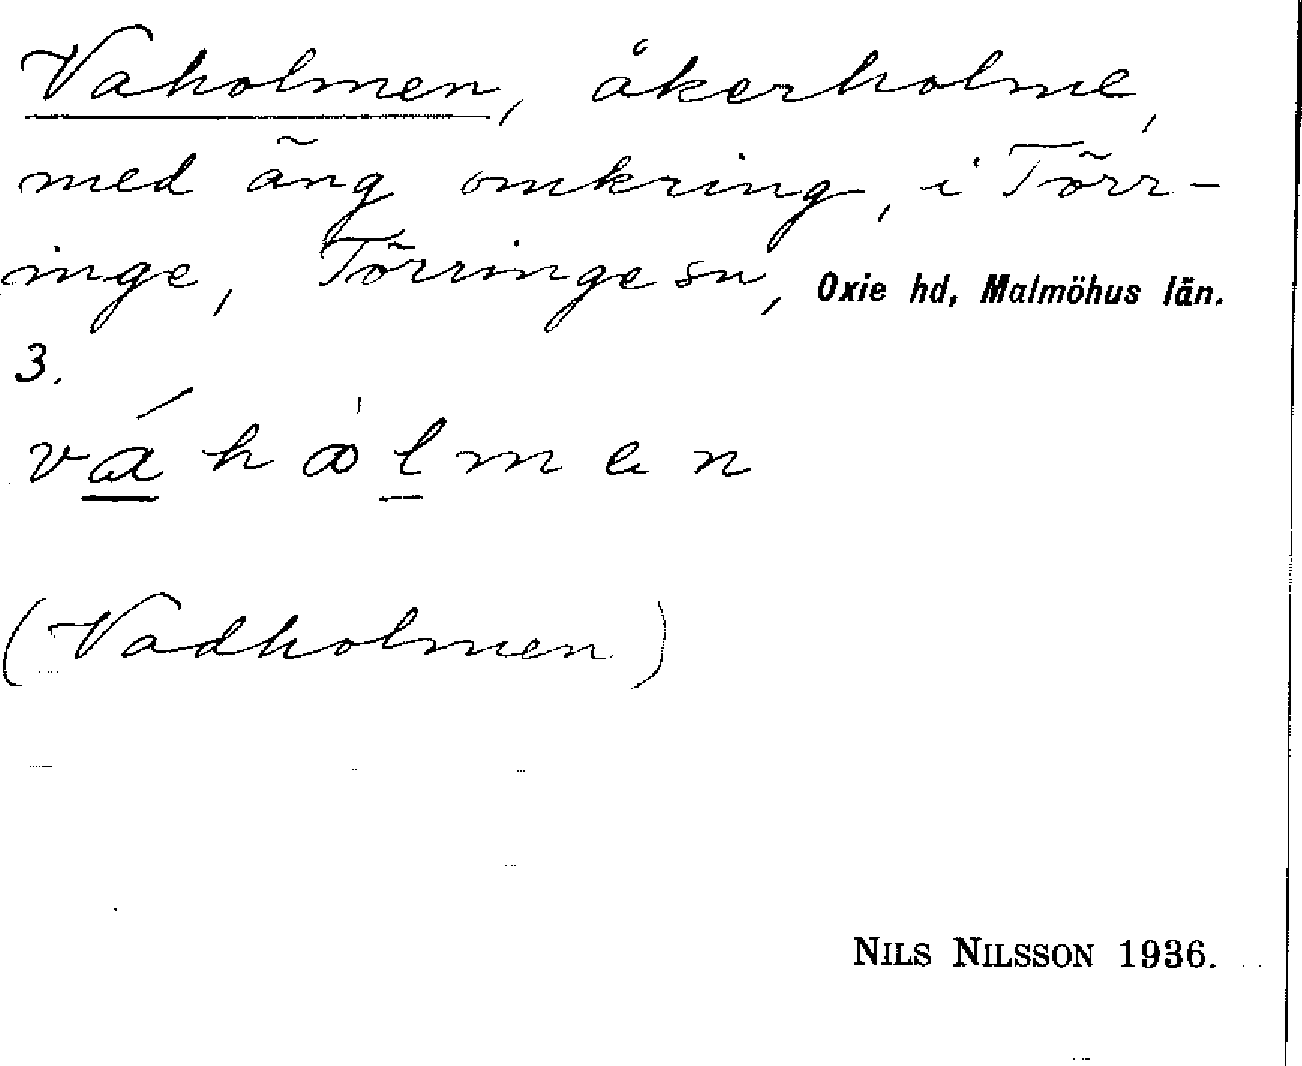 Vaholmen, åkerholme,
med äng omkring, i Törr-
inge, Törringe sn, Oxie hd, Malmöhus län.
3.
váhålmen
(Vadholmen)
NILS NILSSON 1936.